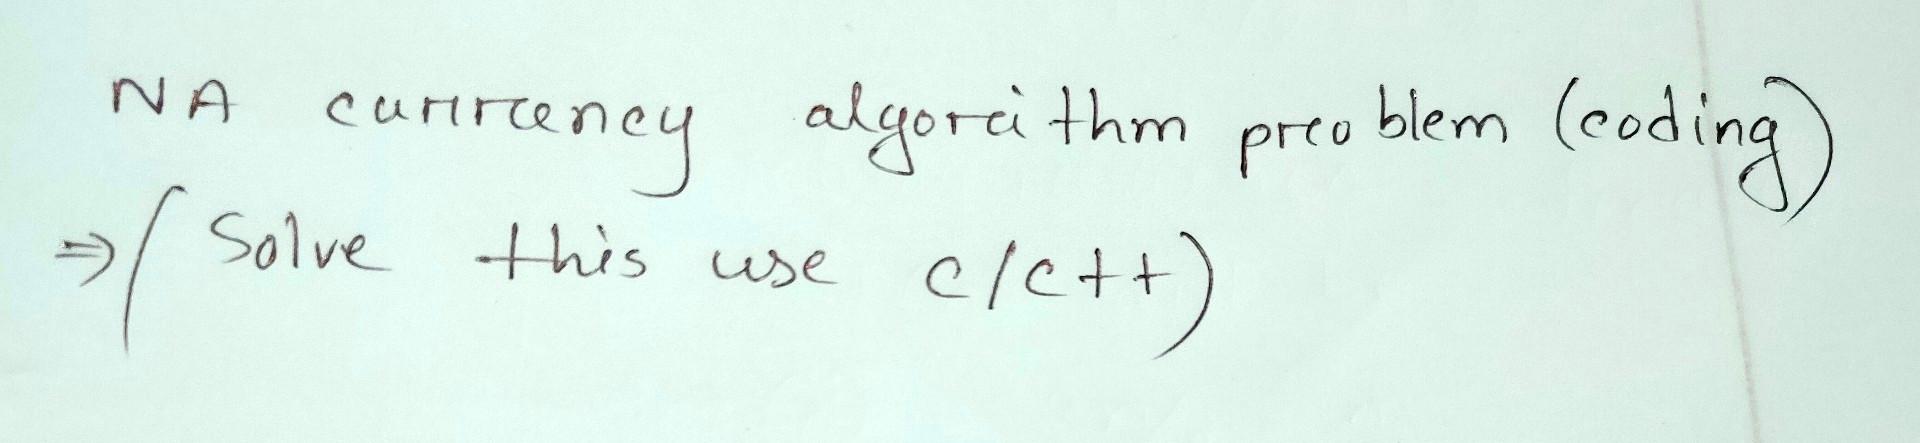 NA currency algorithm problem (coding)
⇒ (Solve this use c/c++)